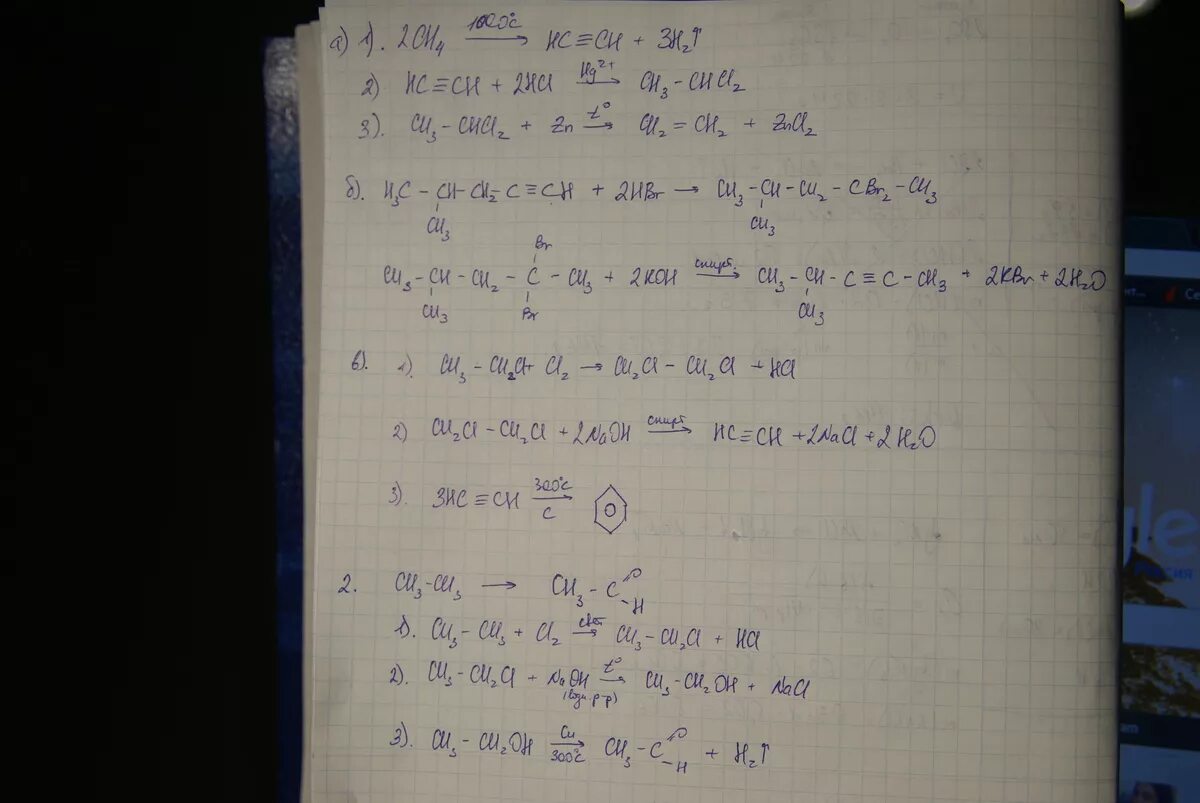 а) 1). 2CH4 1000°C → HC≡CH + 3H2↑
2) HC≡CH + 2HCl Hg2+ → CH3-CHCl2
3). CH3-CHCl2 + Zn t° → CH2=CH2 + ZnCl2
б). H3C-CH-CH2-C≡CH + 2HBr → CH3-CH-CH2-CBr2-CH3
CH3 CH3
Br
CH3-CH-CH2-C-CH3 + 2KOH спирт. → CH3-CH-C≡C-CH3 + 2KBr + 2H2O
CH3 Br CH3
в). 1) CH3-CH2Cl + Cl2 → CH2Cl-CH2Cl + HCl
2) CH2Cl-CH2Cl + 2NaOH спирт → HC≡CH + 2NaCl + 2H2O
3). 3HC≡CH 300°C → C
2. CH3-CH3 → CH3-C=O -H
1). CH3-CH3 + Cl2 свет → CH3-CH2Cl + HCl
2). CH3-CH2Cl + NaOH t° → CH3-CH2OH + NaCl
(водн. р-р)
3). CH3-CH2OH Cu → 300°C CH3-C=O -H + H2↑
gle
Россия
am